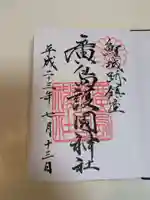 鯉城跡鎮座
廣島護國神社
平成二十三年七月十三日